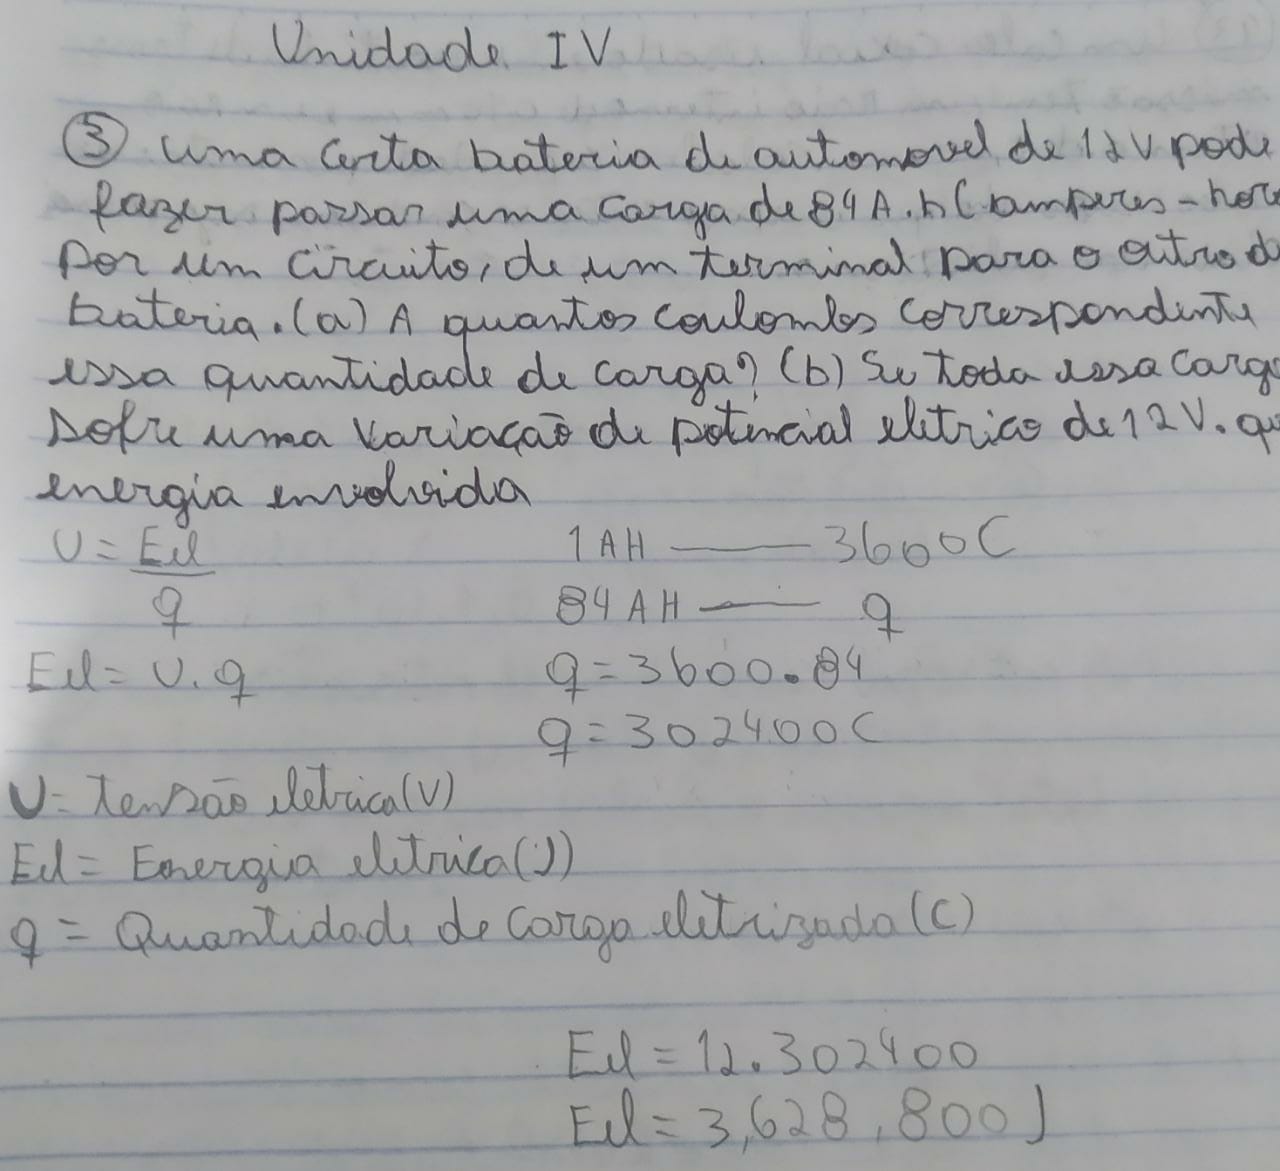 Unidade IV
③ uma certa bateria de automovel de 12V pode
fazer passar uma carga de 84 A.h (amperes-hora
por um circuito, de um terminal para o outro d
bateria. (a) A quantos coulombs correspondente
essa quantidade de carga? (b) Se toda essa carga
sofre uma variação de potencial eletrico de 12V. qu
energia envolvida
U = Eel 1AH —— 3600C
q 84AH —— q
Eel = U.q q = 3600.84
q = 302400C
U = tensão eletrica (V)
Eel = Energia eletrica (J)
q = Quantidade de carga eletrizada (C)
Eel = 12.302400
Eel = 3,628,800J